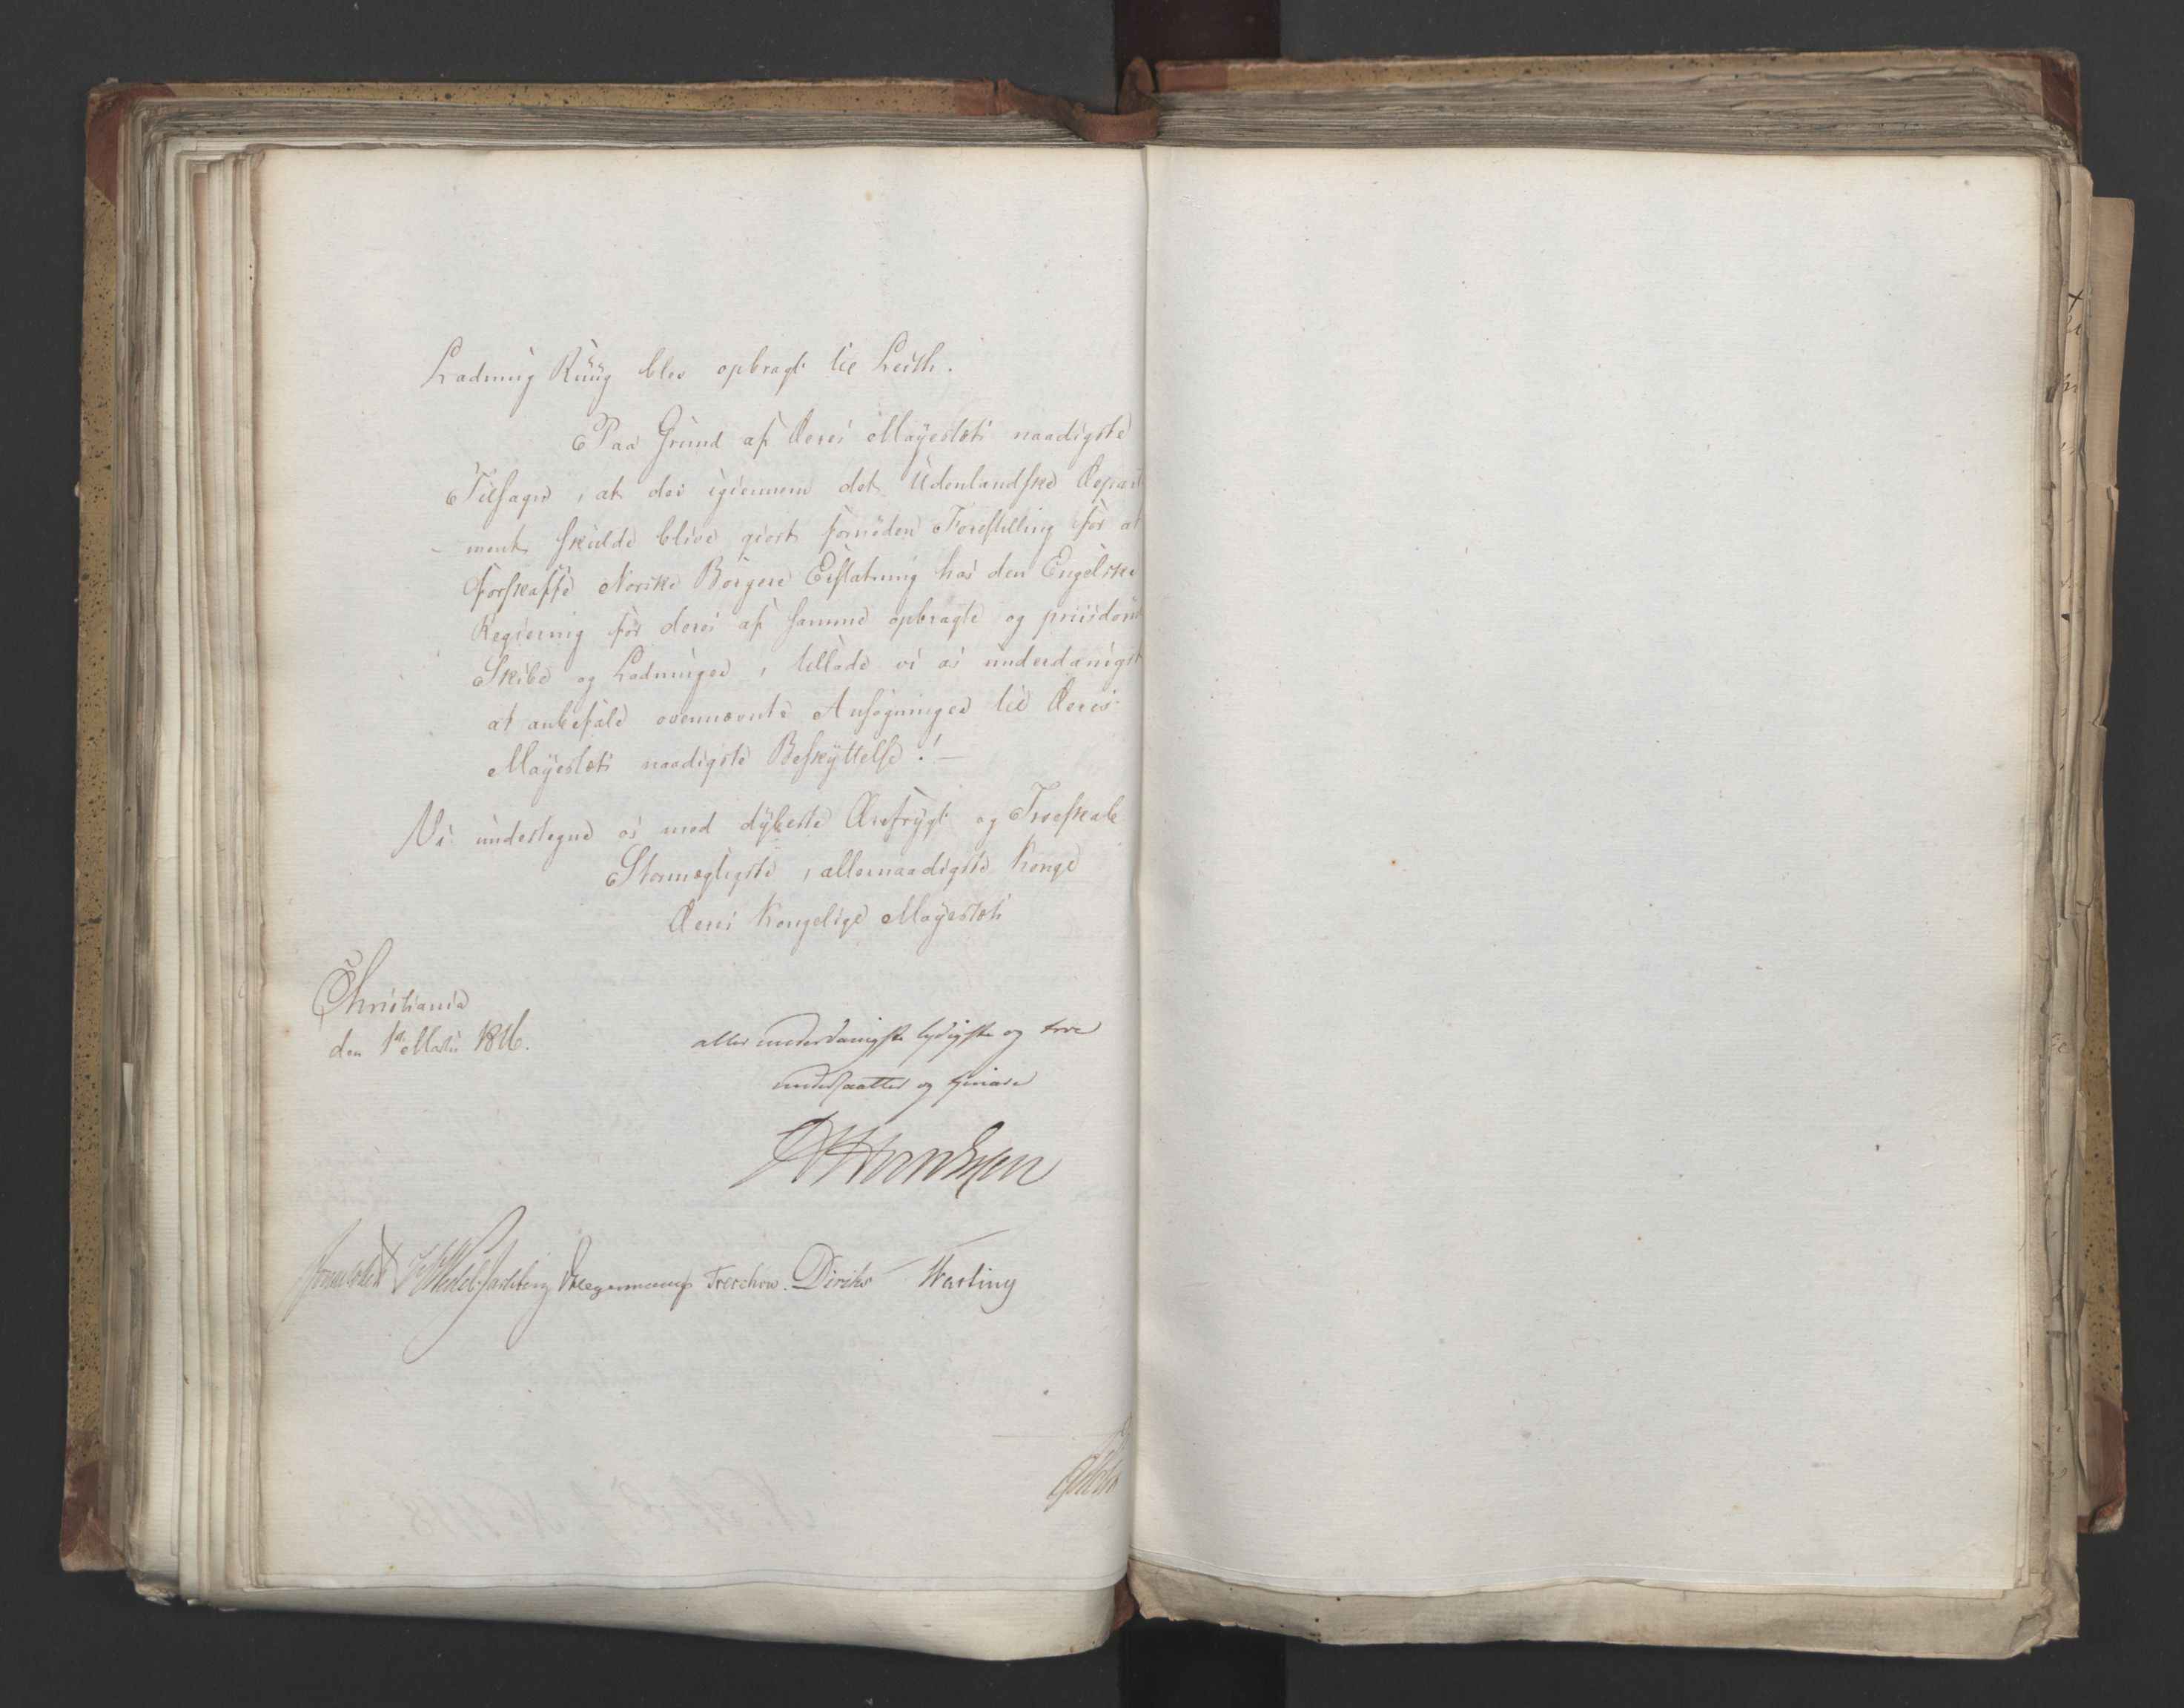 Ladning Rüüg blev opbragt til Leith.
Paa Grund af Deres Mayestæts naadigste
Tilsagn, at der igiennem det Udenlandske Depart
- ment skulde blive giort fornöden Forestilling for at
forskaffe Norske Borgere Erstatning hos den Engelske
Regiering for deres af samme opbragte og priisdömte
Skibe og Ladninger, tillade vi os underdanigst
at anbefale ovennævnte Ansögninger til Deres
Mayestæts naadigste Beskyttelse! —
Vi undertegne os med dybeste Ærefrygt og Troeskab
Stormægtigste, allernaadigste Konge
Deres Kongelige Mayestæts
Christiania
den 1te Martii 1816.
allerunderdanigste lydigste og troe
undersaatter og tjenere
Sommerhielm Wedel Jarlsberg Kragenæs Treschow. Diriks Hasting